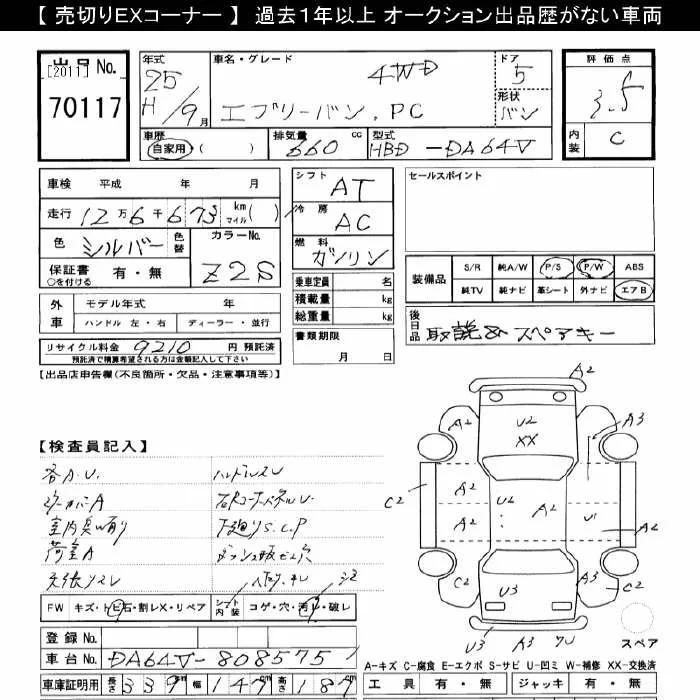 【 売切りEXコーナー 】 過去1年以上 オークション出品歴がない車両
出品 No.
[2011]
70117
年式 25 H/9月
車名・グレード 4WD
エブリーバン.PC
ドア 5
形状 バン
評価点 3.5
内装 C
車歴 自家用・( )
排気量 660 cc
型式 HBD-DA64V
車検 平成 年 月
走行 12万6千673 km マイル( )
色 シルバー 色替
カラーNo. Z2S
保証書 有・無
○を付ける
シフト AT
冷房 AC
燃料 ガソリン
乗車定員 名
積載量 kg
総重量 kg
書類期限
月 日
セールスポイント
装備品 S/R 純A/W P/S P/W ABS
純TV 純ナビ 革シート 外ナビ エアB
後日品 取説&スペアキー
外車 モデル年式 年
ハンドル 左・右 ディーラー・並行
リサイクル料金 9210 円 預託済
預託済で精算希望される方は金額記入して下さい
【出品店申告欄(不良箇所・欠品・注意事項等)】
【検査員記入】
各A.U.
ハンドルスレ
室内臭い有り
下廻りS.C.P
荷室A
天張リスレ
A2
A2 U2 XX A3
C2 A2 U2 A2
A2 U1
C2 U3 A3 C2
U3 A3
スペア
FW キズ・トビ石・割レX・リペア シート内装 コゲ・穴・汚レ・破レ
登録 No.
車台 No. DA64V-808575
車庫証明用 長さ 339 幅 147 高さ 187
A-キズ C-腐食 E-エクボ S-サビ U-凹ミ W-補修 XX-交換済
工具 有・無 ジャッキ 有・無